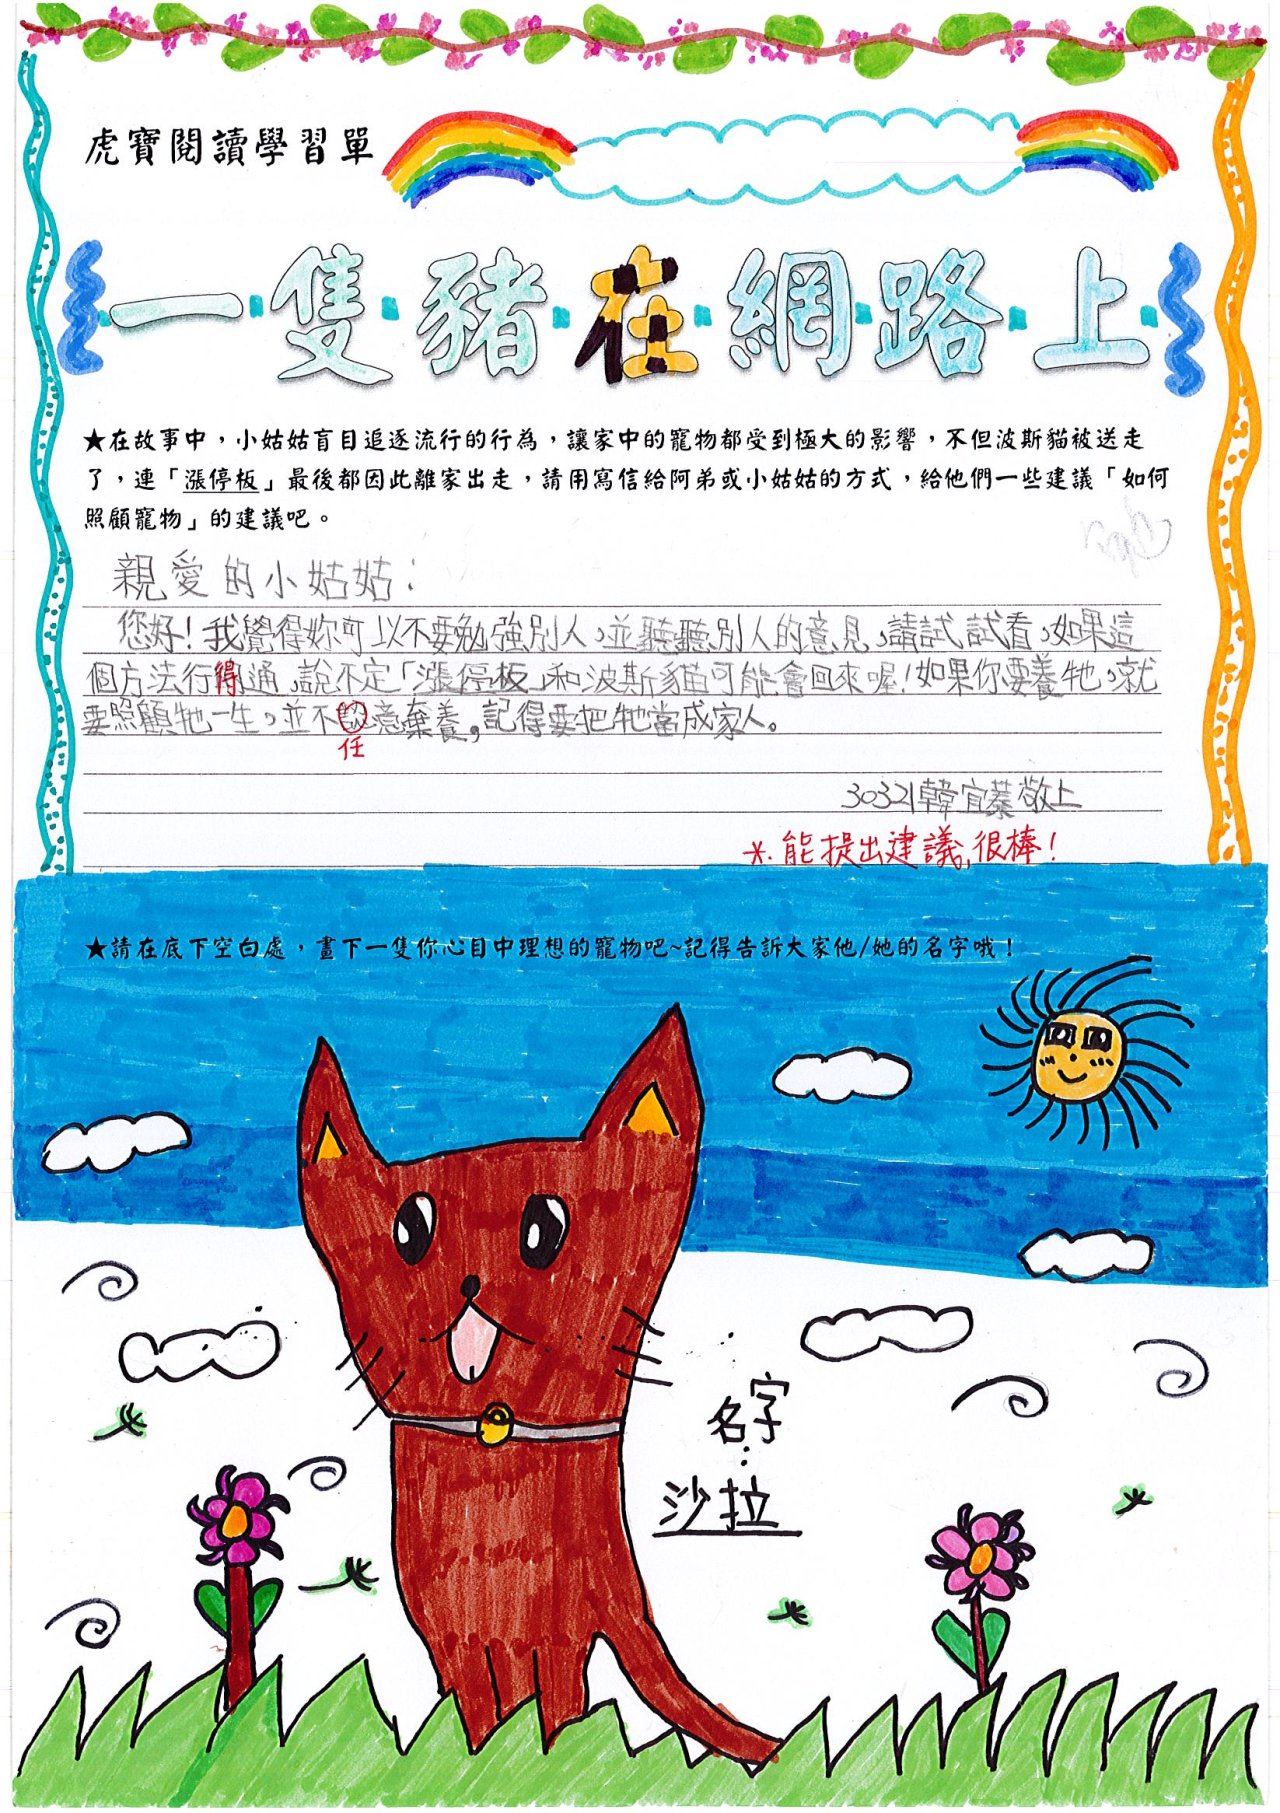 虎寶閱讀學習單
一·隻·豬·在·網·路·上
★在故事中，小姑姑盲目追逐流行的行為，讓家中的寵物都受到極大的影響，不但波斯貓被送走
了，連「漲停板」最後都因此離家出走，請用寫信給阿弟或小姑姑的方式，給他們一些建議「如何
照顧寵物」的建議吧。
親愛的小姑姑：
您好！我覺得妳可以不要勉強別人，並聽聽別人的意見，請試試看，如果這
個方法行得通，說不定「漲停板」和波斯貓可能會回來喔！如果你要養牠，就
要照顧牠一生，並不意棄養，記得要把牠當成家人。
任
30321韓宜蓁敬上
*.能提出建議，很棒！
★請在底下空白處，畫下一隻你心目中理想的寵物吧~記得告訴大家他/她的名字哦！
名字：
沙拉